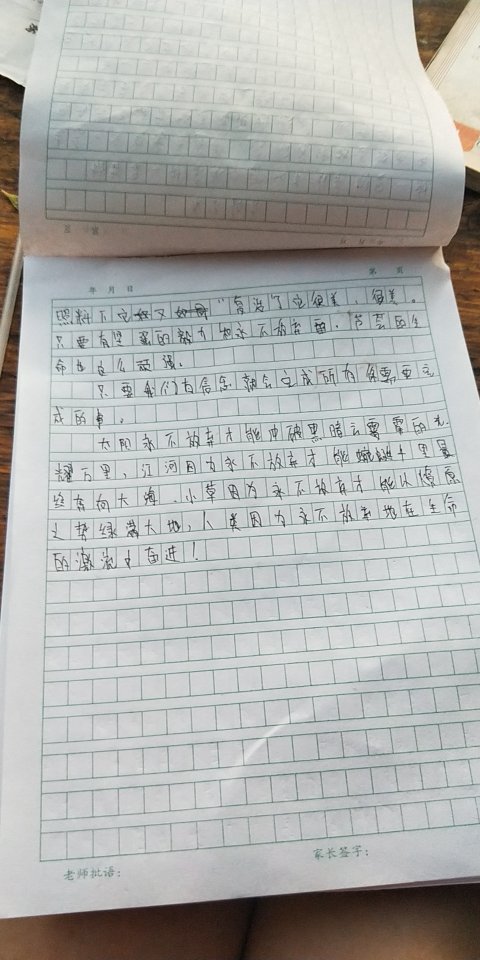 第 页
年 月 日
照料下它又"复活"了它很美，很美。
只要有坚强的毅力和永不放弃，的生
命也这么顽强。
只要我们有信念就会完成所有需要完
成的事。
太阳永不放弃才能冲破黑暗云雾的光
耀万里，江河因为永不放弃才能蜿蜒千里最
终奔向大海，小草因为永不放弃才能以燎原
之势绿满大地，人类因为永不放弃地在生命
的激流中奋进！
老师批语：
家长签字：